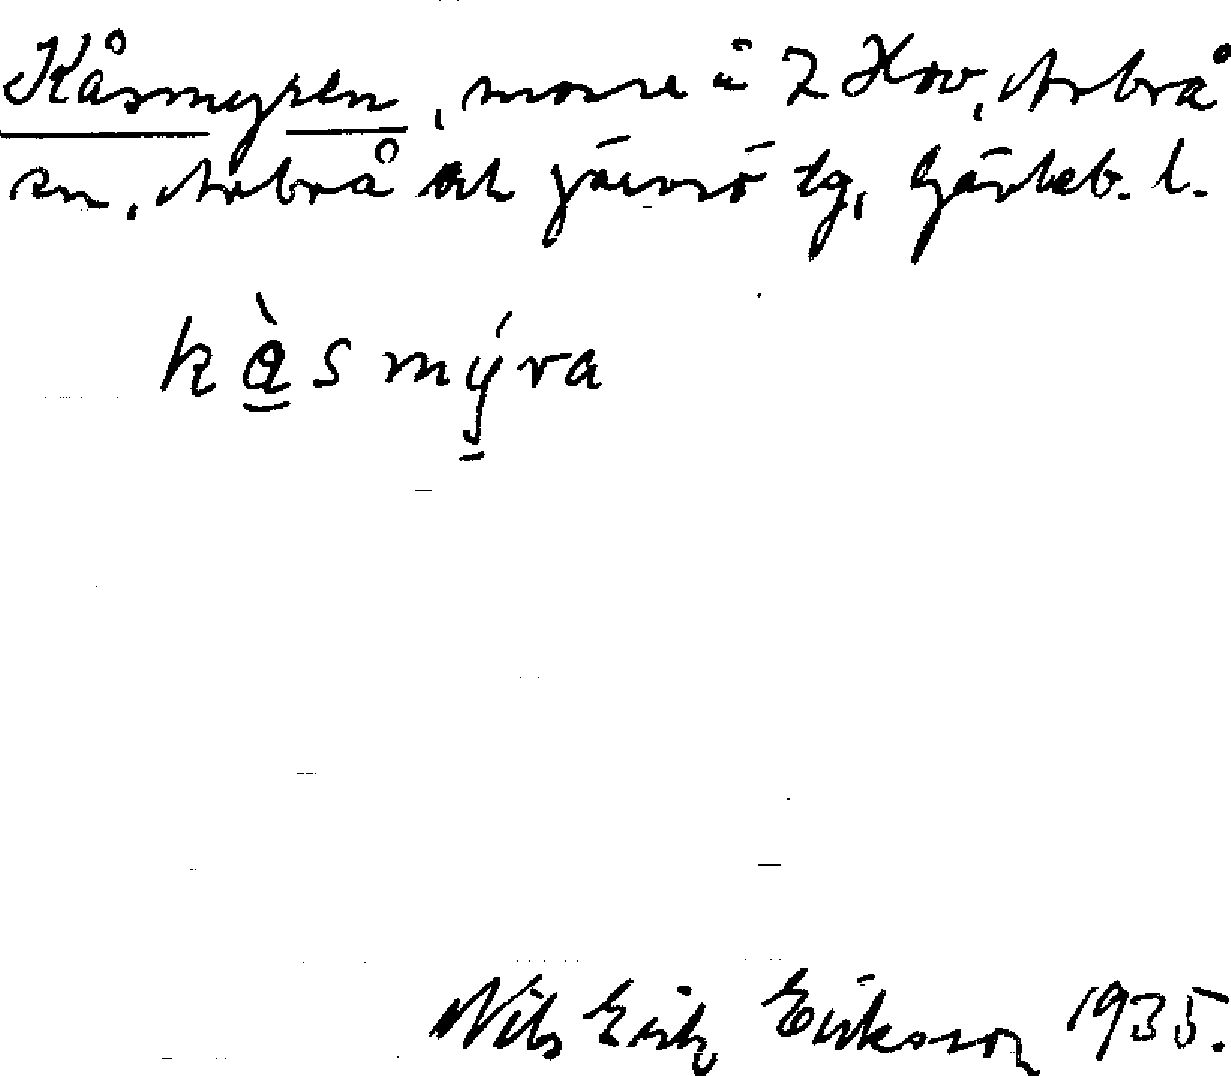 Kåsmyren, mosse i Z Hov, Arbrå
sn, Arbrå och Järvsö tg, Gävleb. l.
kàsmýra
Nils Erik Eriksson 1935.